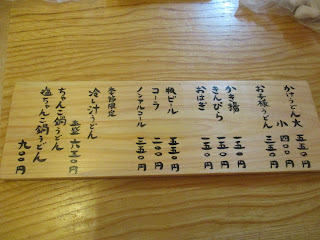 かけうどん 大 五五〇円
小 四〇〇円
お子様うどん 三五〇円
かき揚 一五〇円
きんぴら 一五〇円
おはぎ 一五〇円
瓶ビール 五五〇円
コーラ 二〇〇円
ノンアルコール 三五〇円
季節限定
冷し汁うどん
並盛 六五〇円
ちゃんこ鍋うどん
塩ちゃんこ鍋うどん
九〇〇円